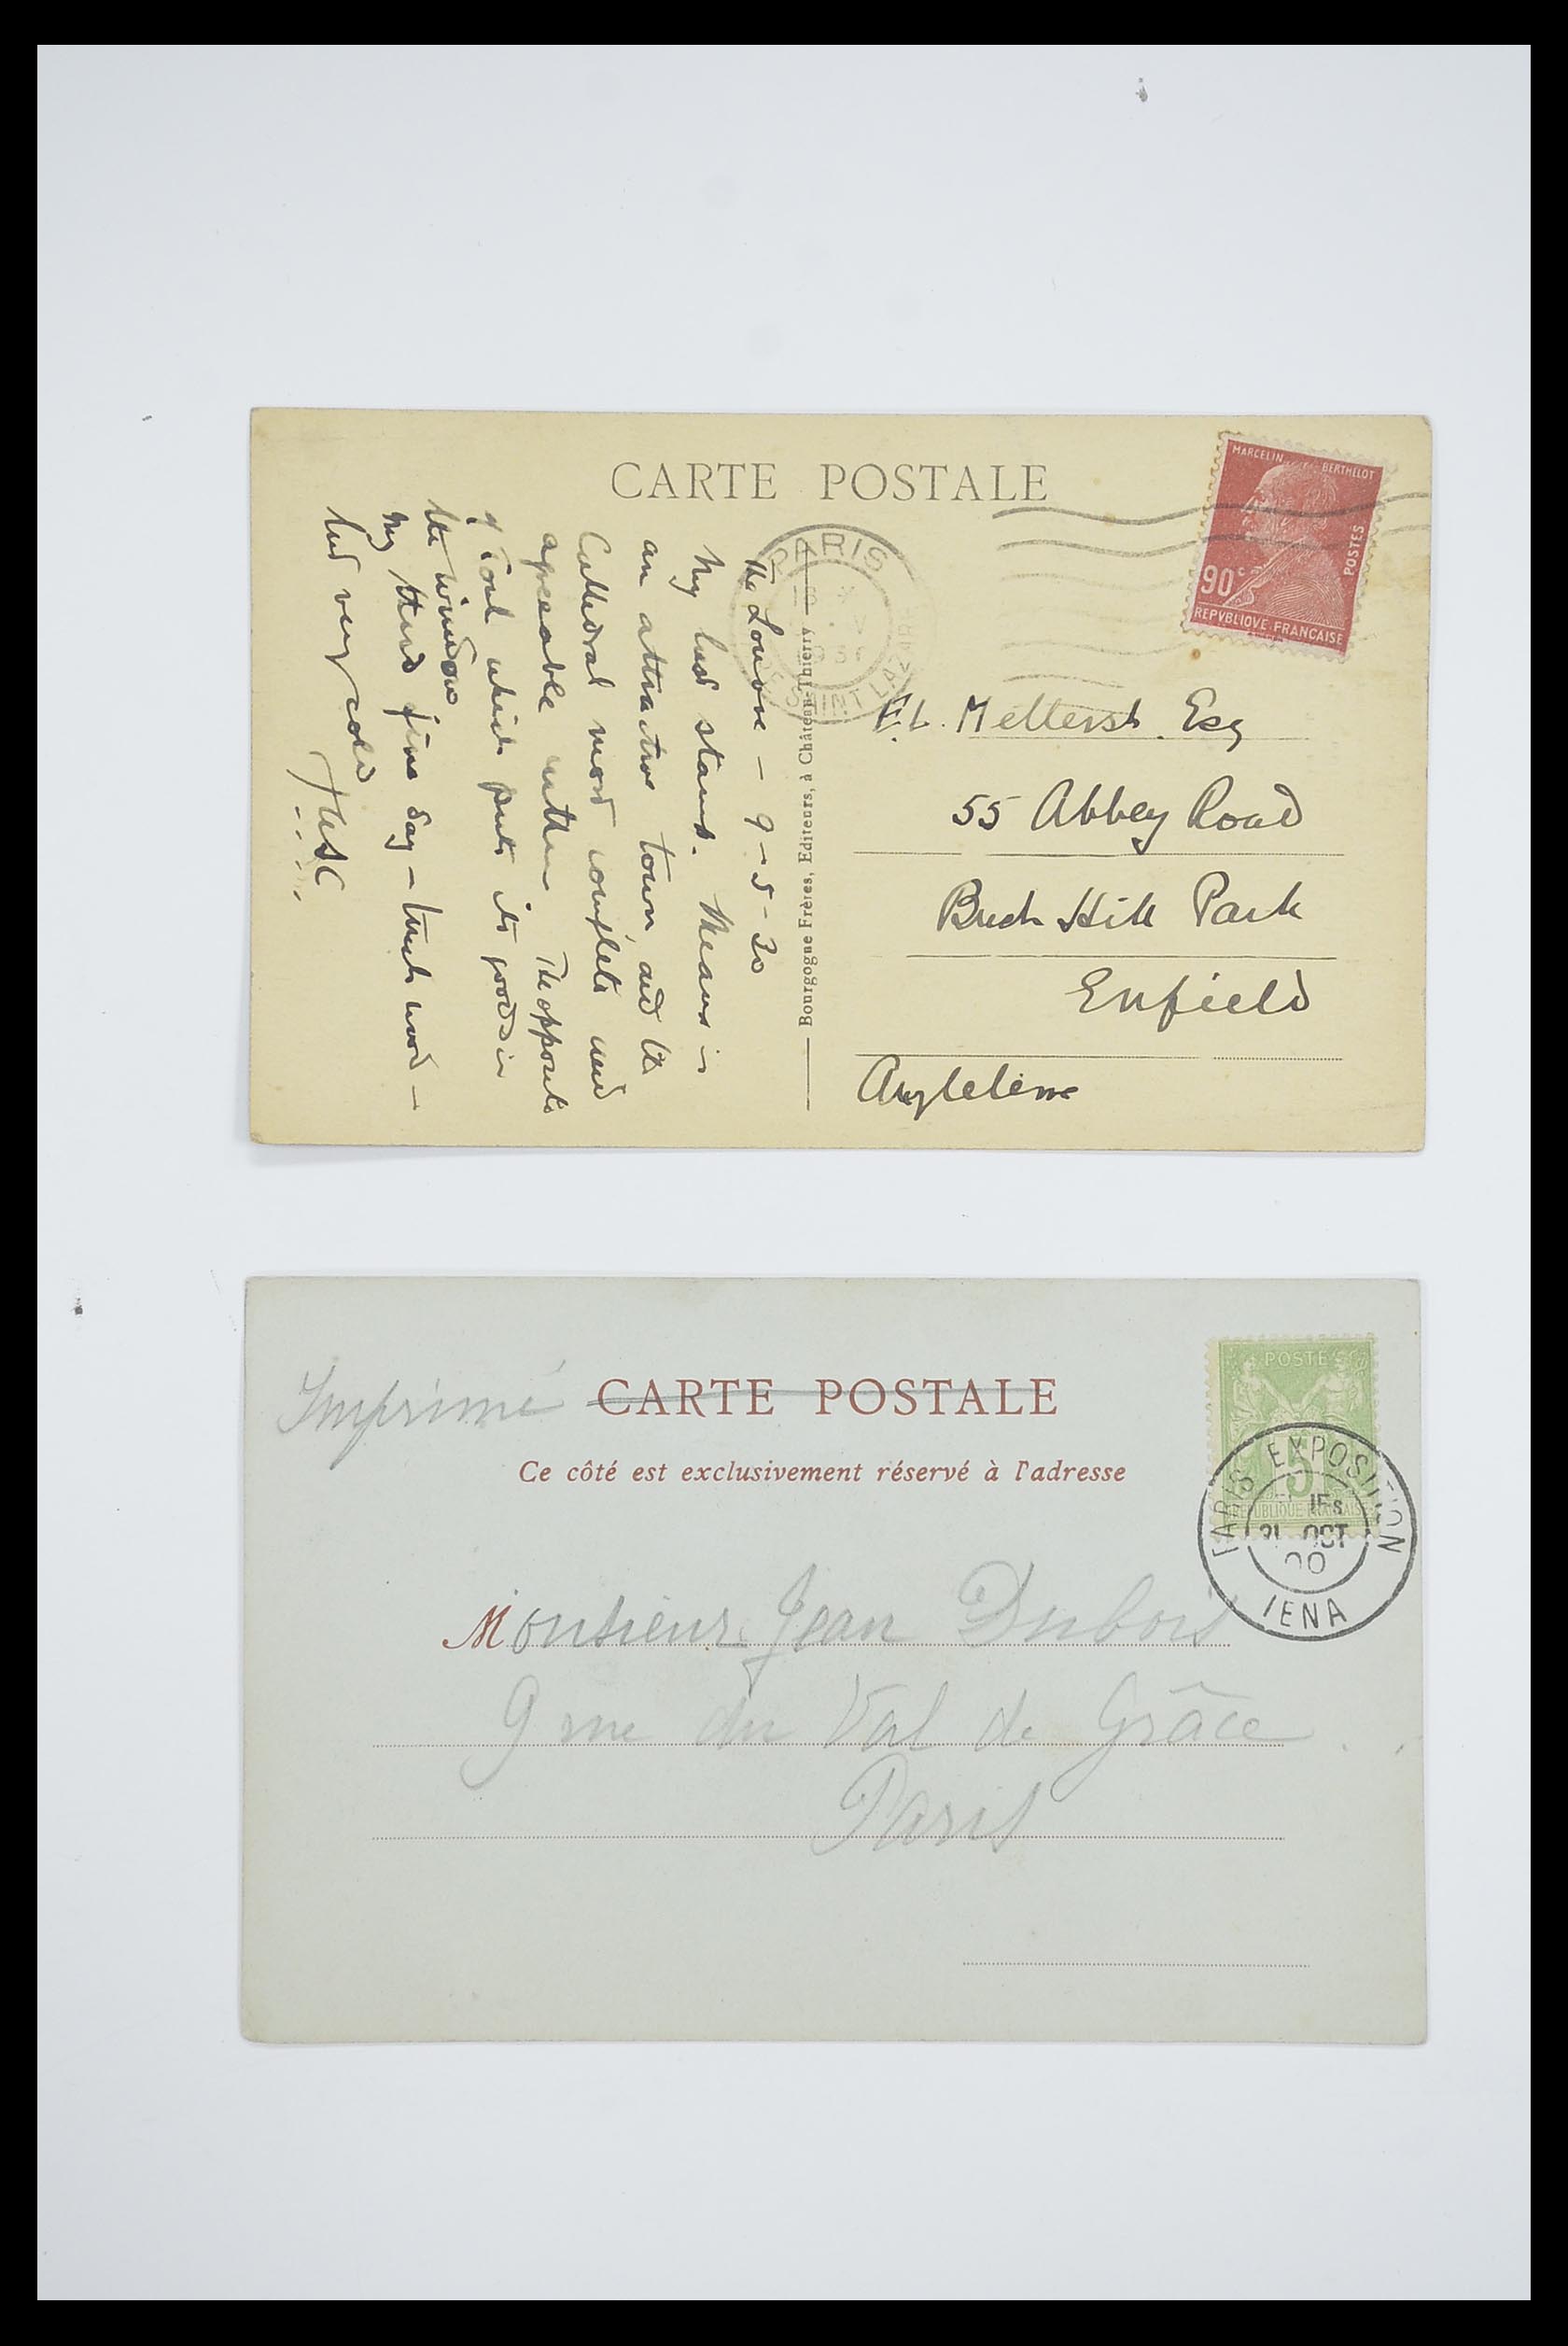 CARTE POSTALE
MARCELIN BERTHELOT
POSTES
90c
REPVBLIQVE FRANÇAISE
PARIS
ST LAZARE
The Louvre – 9-5-30
My last stamp. Meaux is
an attractive town, and the
Cathedral most complete and
agreeable within The opposite
of Toul which puts its goods in
the window
My third fine day – touch wood –
but very cold
— Bourgogne Frères, Editeurs, à Château-Thierry —
F.L. Mettersh. Esq
55 Abbey Road
Bush Hill Park
Enfield
Angleterre
Imprimé CARTE POSTALE
Ce côté est exclusivement réservé à l'adresse
POSTE
5
REPUBLIQUE FRANÇAISE
PARIS EXPOSITION
31 OCT
00
IENA
Monsieur Jean Dubois
9 rue du Val de Grâce
Paris